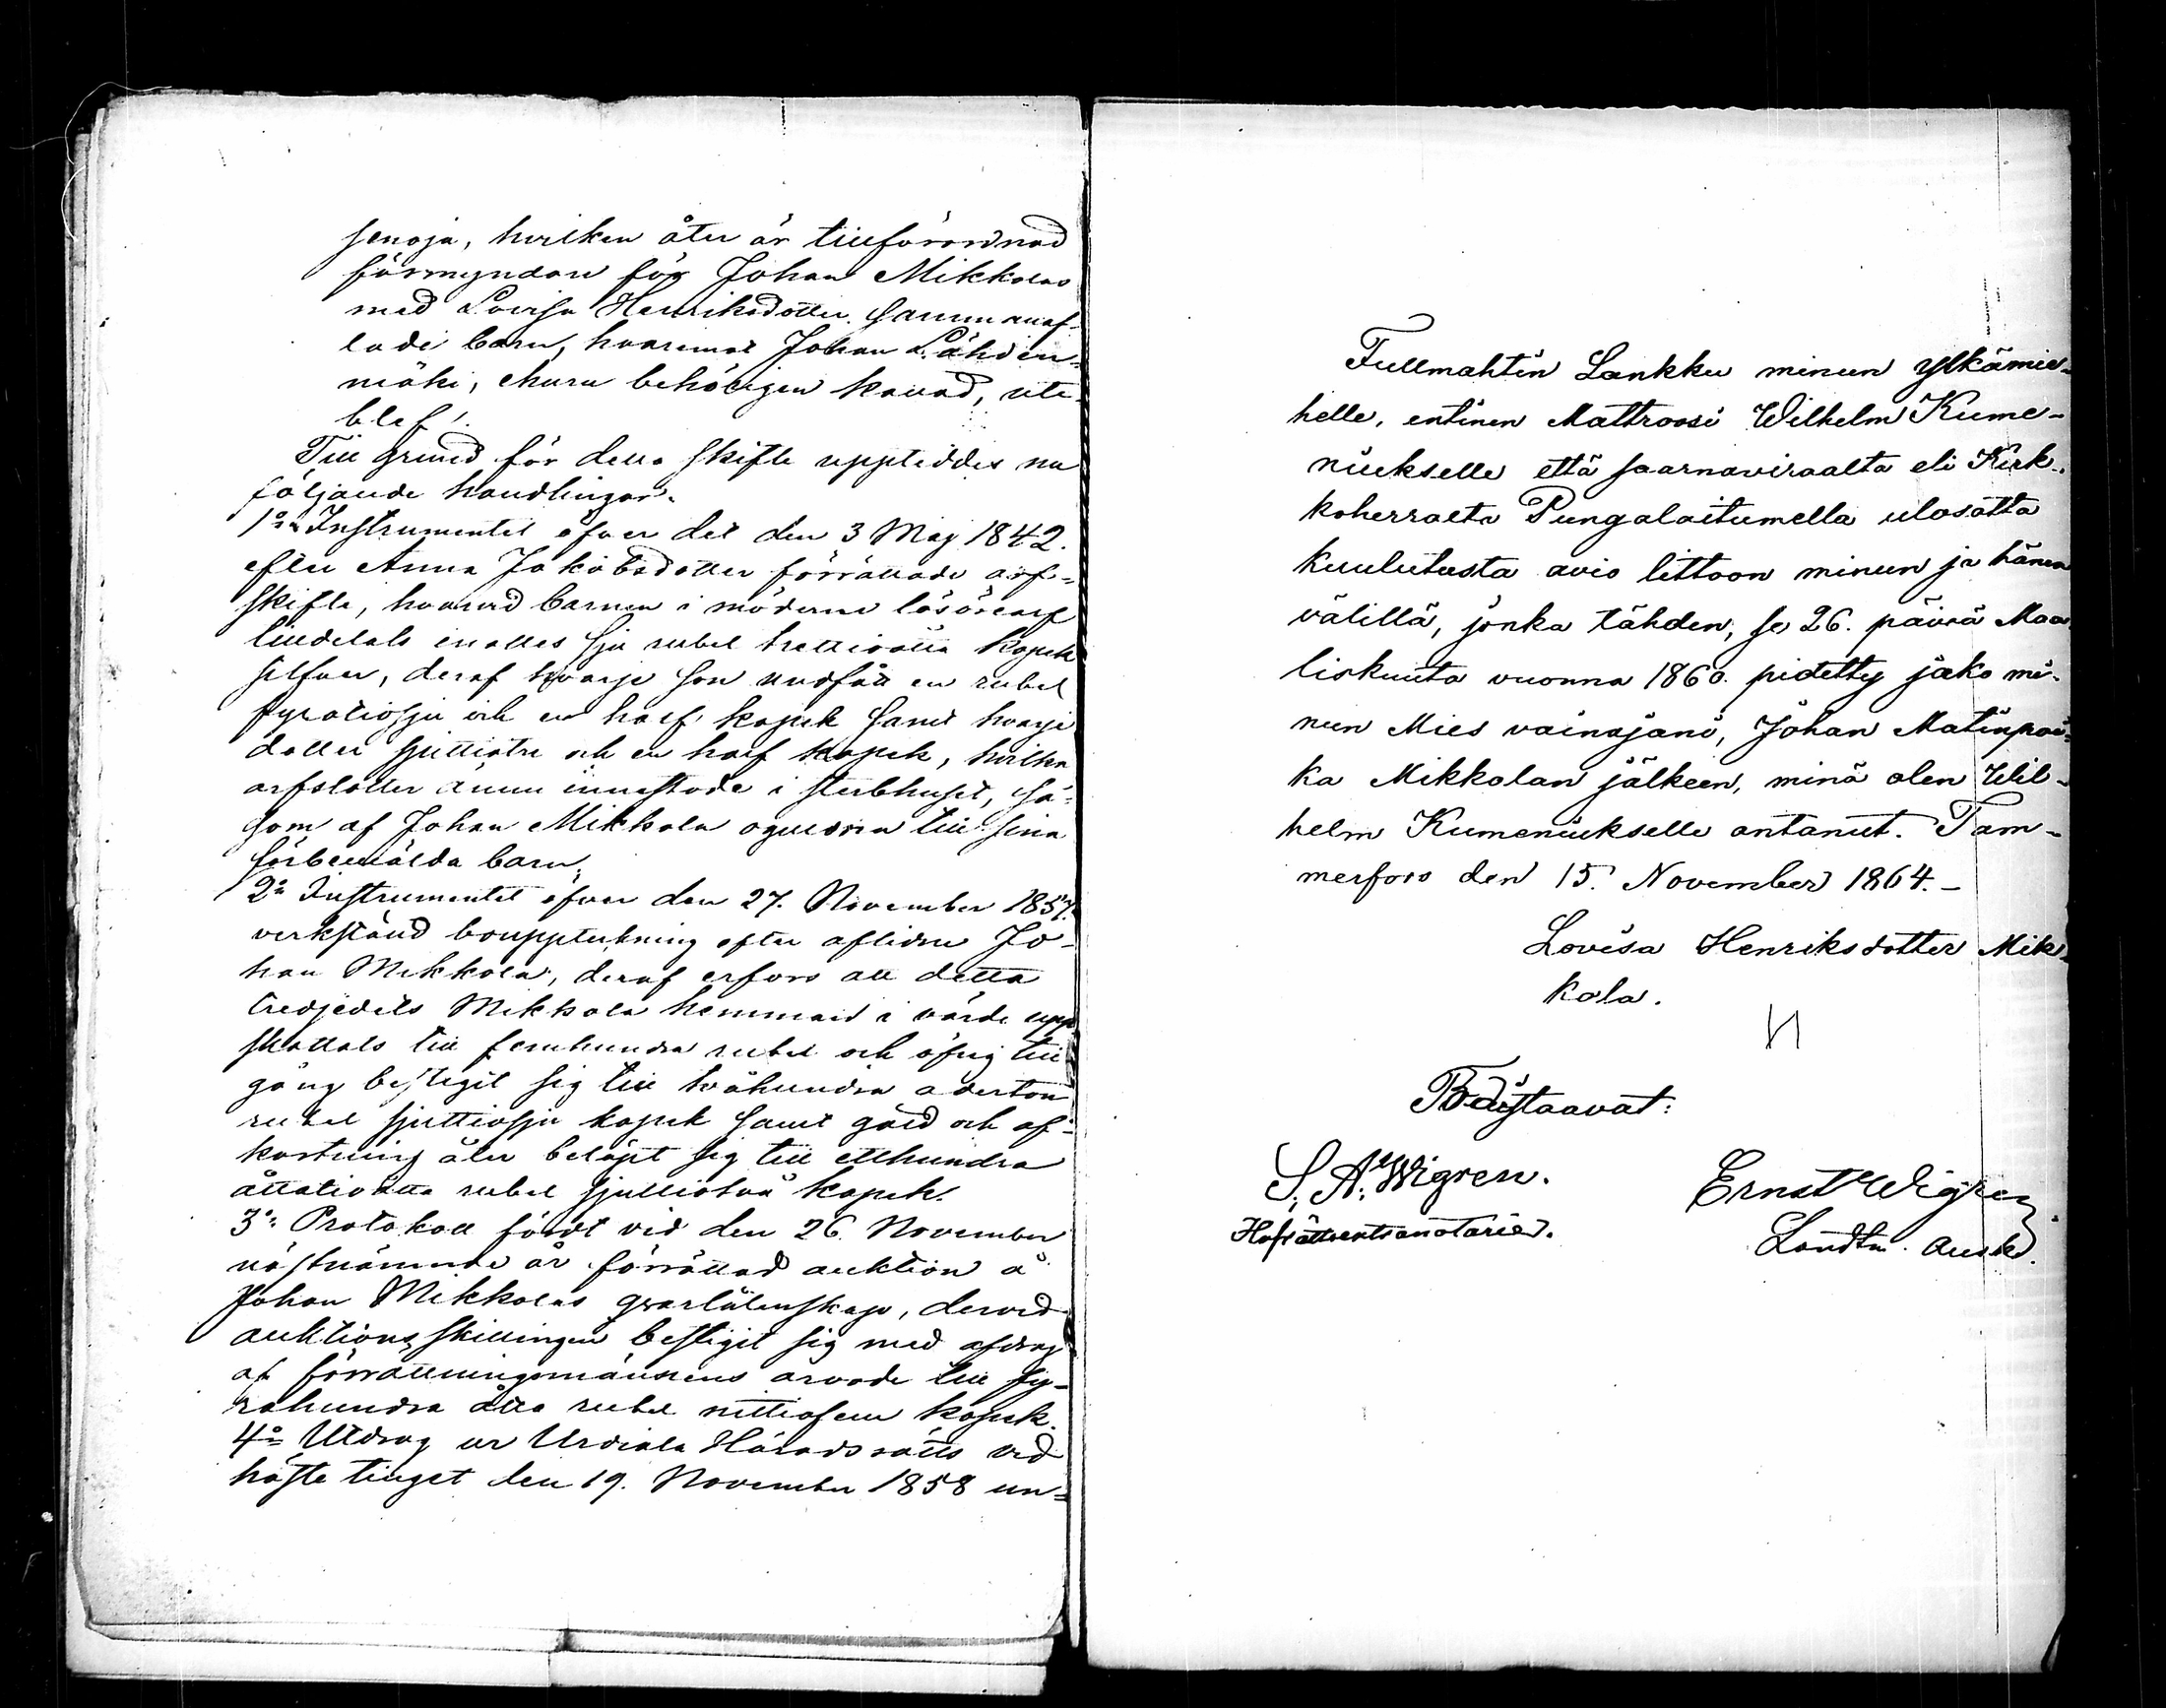 senoja, hvilken åter är tillförordnad
förmyndare för Johan Mikkolas
med Lovisa Henriksdotter samman af-
lade barn, hvaremot Johan Lähden-
mäki, ehuru behörigen kallad, ute-
blef.
Till grund för detta skifte uppteddes nu
följande handlingar.
1o Instrumentet öfver det den 3 Maj 1842.
efter Anna Jakobsdotter förrättade arf-
skifte, hvarvid barnen i möderne lösörearf
tilldelats inalles sju rubel trettioåtta kopek
silfver, deraf hvarje son undfått en rubel
fyratiosju och en half kopek samt hvarje
dotter sjuttiotre och en half kopek, hvilka
arfslotter ännu innestode i sterbhuset, så-
som af Johan Mikkola oguldna till sina
förbemälda barn.
2o Instrumentet öfver den 27. November 1857.
verkställd bouppteckning efter aflidne Jo-
han Mikkola, deraf erfors att detta
tredjedels Mikkola hemman i värde upp-
skattats till femhundra rubel och öfrig till-
gång bestigit sig till tvåhundra aderton
rubel sjuttiosju kopek samt gäld och af-
kortning åter belöpt sig till etthundra
åttatioåtta rubel sjuttiotvå kopek.
3o Protokoll fördt vid den 26. November
nästnämnde år förrättad auktion å
Johan Mikkolas qvarlåtenskap, dervid
auktions skillingen bestigit sig med afdrag
af förrättningsmännens arvode till fy-
rahundra åtta rubel nittiofem kopek.
4o Utdrag ur Urdiala Häradsrätts vid
höste tinget den 19. November 1858 un-
Fullmahtin Lankku minun ylkämie-
helle, entinen Mattroosi Wilhelm Kume-
niukselle että saarnaviraalta eli Kirk-
koherralta Pungalaitumella ulosotta
kuulutusta avio littoon minun ja hänen
välillä, jonka tähden, se 26. päivä Maa
liskuuta vuonna 1860. pidetty jako mi-
nun Mies vainajani, Johan Matinpoi-
ka Mikkolan jälkeen, minä olen Wil-
helm Kumeniukselle antanut. Tam-
merfors den 15. November 1864.-
Lovisa Henriksdotter Mik-
kola.
Todistaavat:
S. A. Wigren. Ernst Wigren
Hofrättsentsanotarie. Landtm. Ausk.